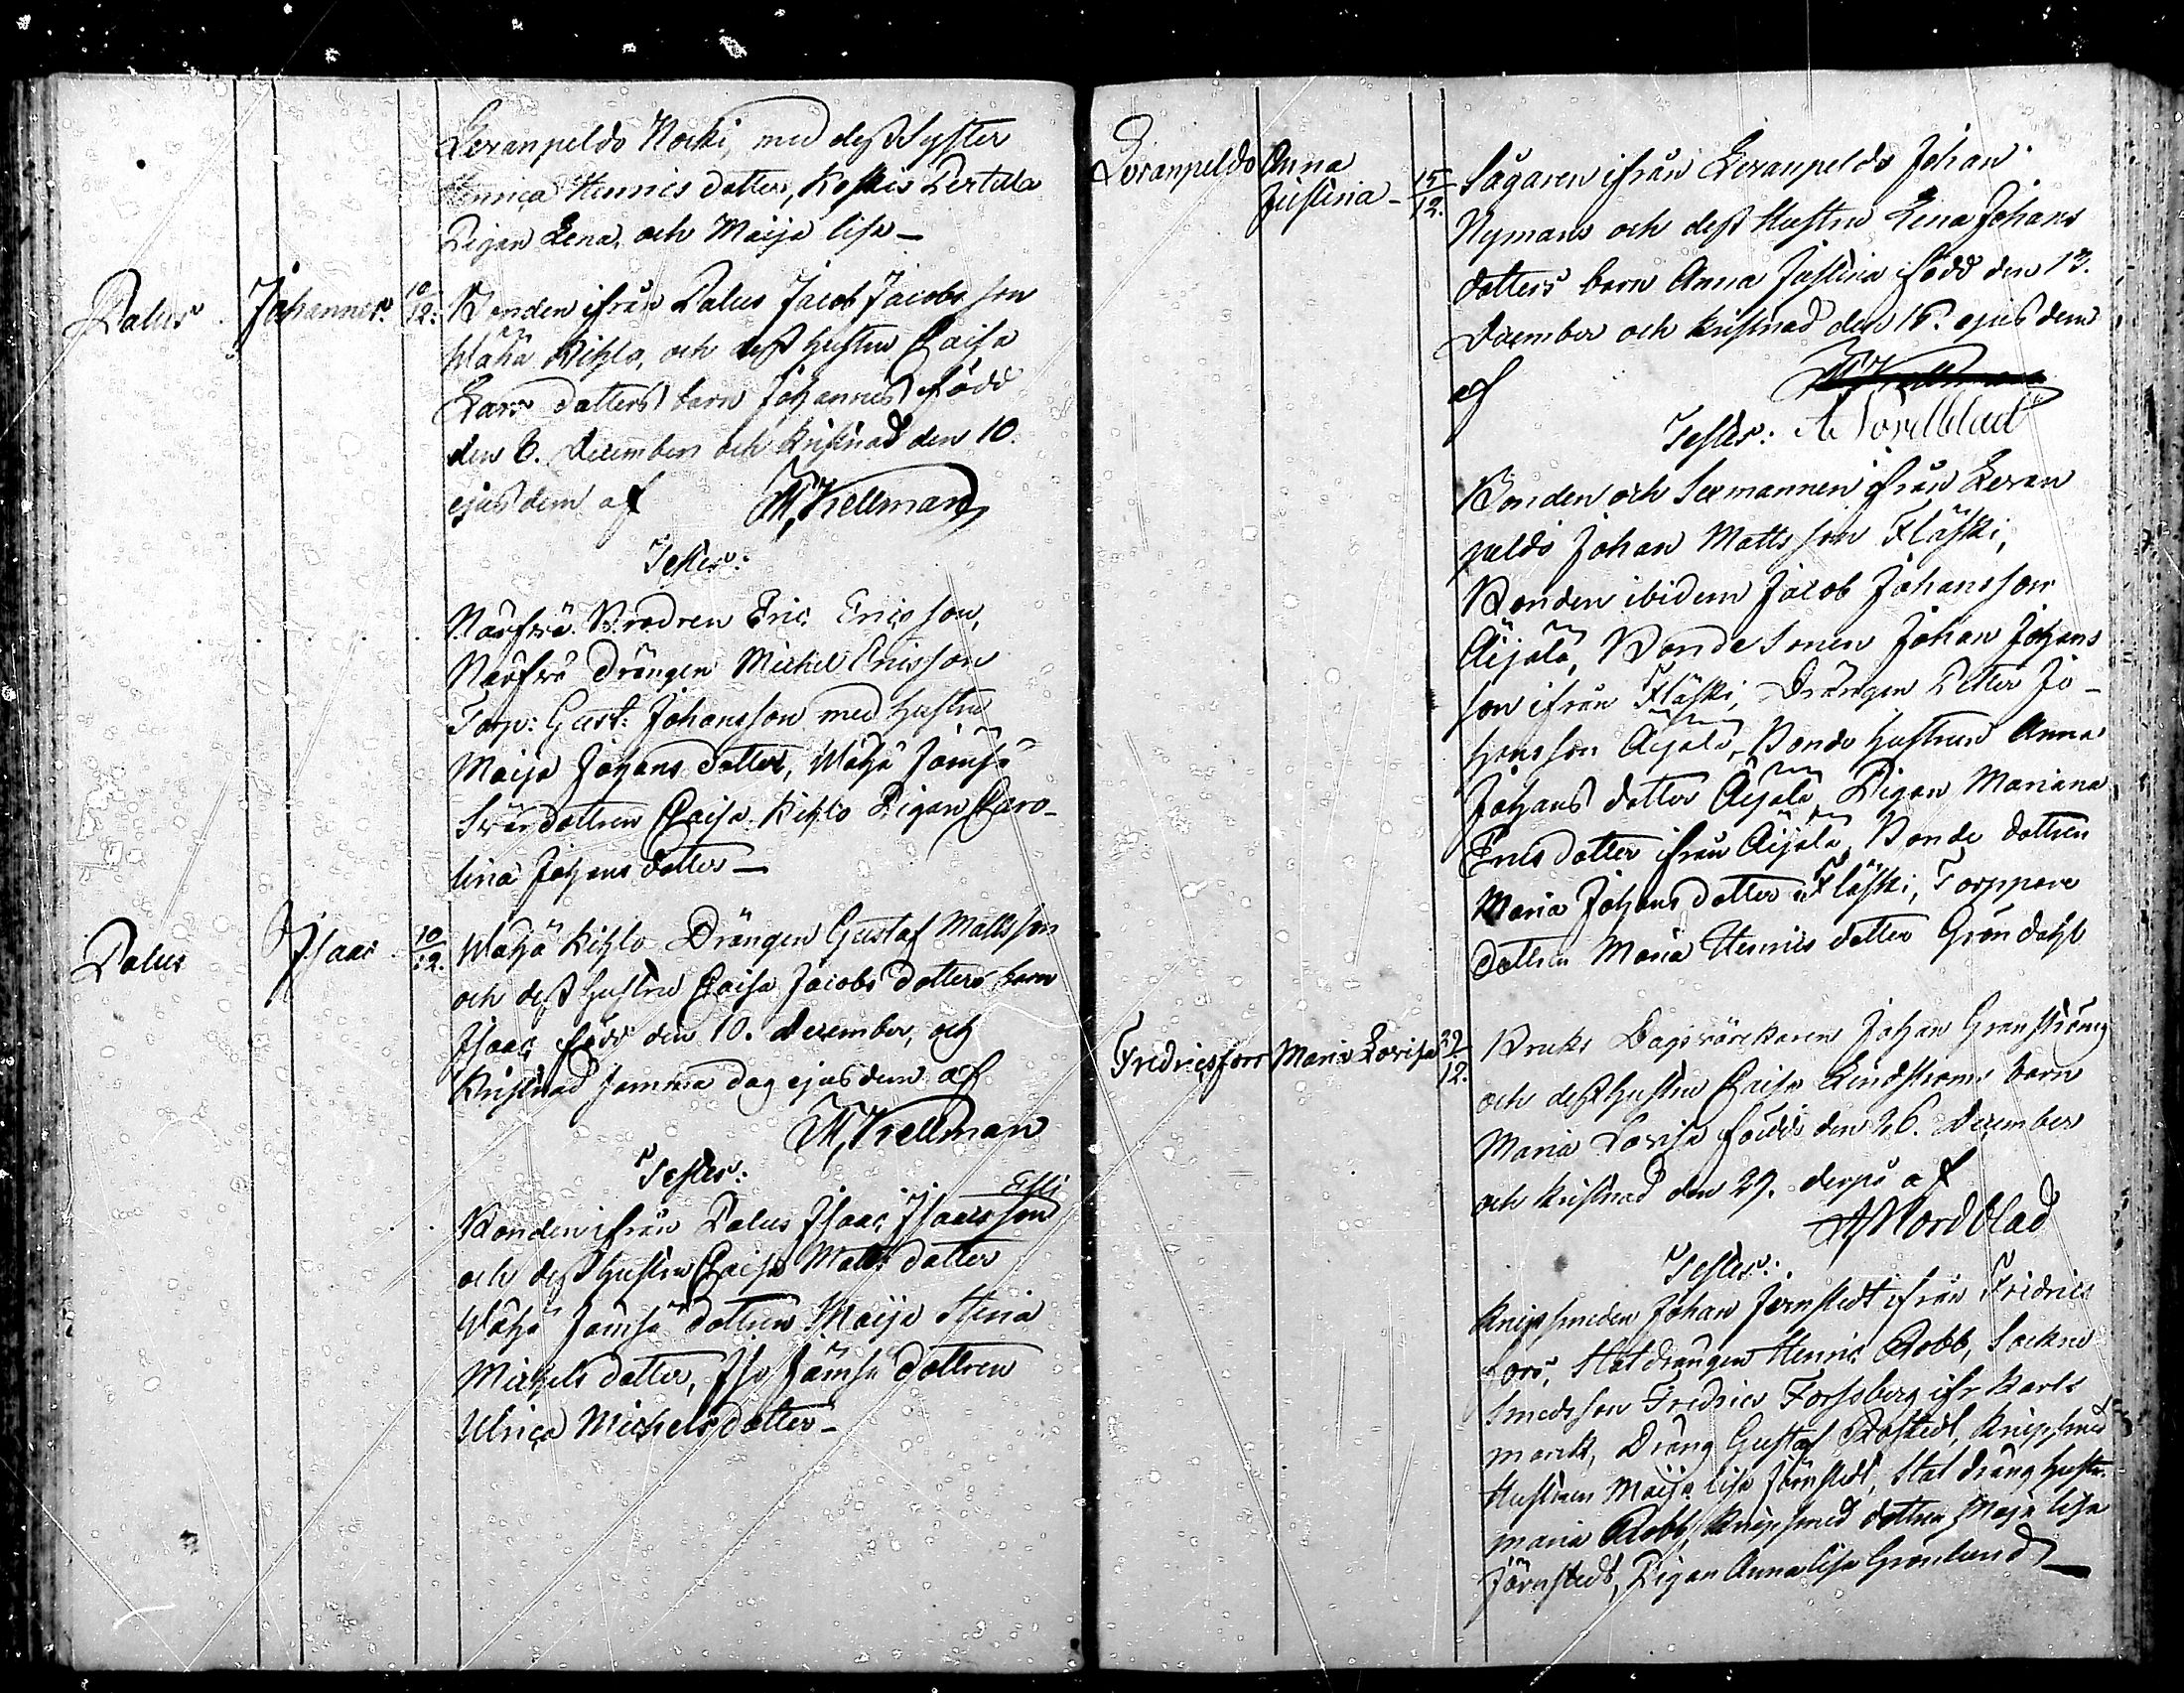 Leranpeldo Nocki, med dess Syster
Henrica Henrics dotter, Koskis Pertilla
Pigan Lena, och Maija lisa –
Palus Johannes. 10/12. Bonden ifrån Palus Jacob Jacobs son
Wähä Kihlo, och dess hustru Caisa
Lars dotters barn Johannes född
den 8. December och kristnad den 10.
ejusdem af M. Kellman
Testes:
Eric Ericsson,
Drängen Michel Ericsson
Torp: Gust: Johansson med hustru
Maija Johans dotter, Wähä Jämsä
Svärdottren Caisa Kihlo Pigan Caro-
lina Johans dotter –
Palus Isaac 10/12. Wähä Kihlo Drängen Gustaf Matts son
och dess hustru Caisa Jacobs dotters barn
Isaac född den 10. December, och
kristnad samma dag ejusdem af
M. Kellman
Testes:
Elli
Bonden ifrån Palus Isaac Isaacs son
och dess hustru Caisa Matts dotter
Wähä Jämsä dottren Maija Stina
Michels dotter, Iso Jämsä dottren
Ulrica Michels dotter –
Leranpeldo Anna
Justina – 15/12. Sågaren ifrån Leranpeldo Johan
Nymans och dess Hustru Lena Johans
dotters barn Anna Justina född den 13.
December och kristnad den 15. ejusdem
af M. Kellman
Testes: A Nordblad
Bonden och Sexmannen ifrån Leran
peldo Johan Matts son Fläski,
Bonden ibidem Jacob Johansson
Äijälä, Bonde Sonen Johan Johans
son ifrån Fläski, Drängen Petter Jo-
hans son Äijälä, Bonde hustrun Anna
Johans dotter Äijälä, Pigan Mariana
Erics dotter ifrån Äijälä, Bonde dottren
Maria Johans dotter Fläski, Torppare
dottren Maria Henrics dotter Gröndahl
Fredricsfors Maria Lovisa 29/12. Bruks Johan Granström
och dess hustru Caisa Lindströms barn
Maria Lovisa född den 26. December
och kristnad den 29. af
A Nordblad
Testes:
Knipsmeden Johan Jernstedt ifrån Fridrics
fors, Statdrängen Henric Robb, Sockne
Smeds son Fredric Forssberg ifr Karls
marck, Dräng Gustaf Rostedt, Knipsmed
Hustrun Maija lisa Järnstedt, Stat dräng hustr.
maria Robb, Knipsmed dottren Maja lisa
Järnstedt, Pigan Annalisa Grönlund –